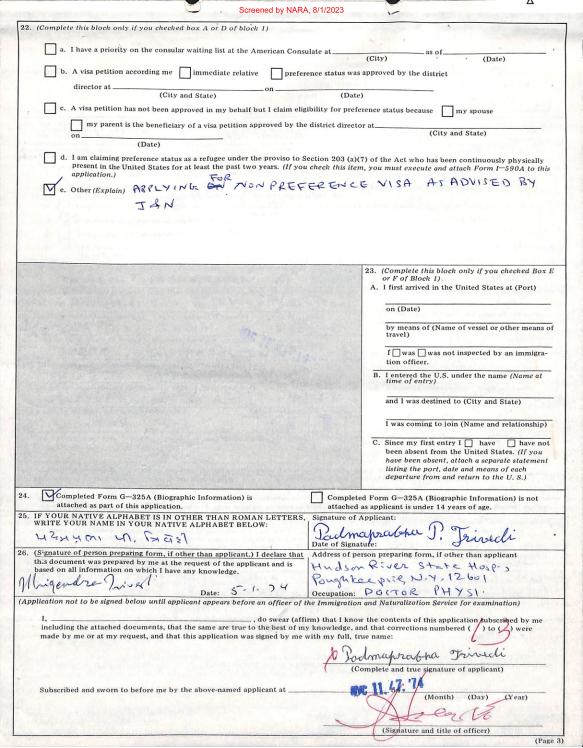 Screened by NARA, 8/1/2023
22. (Complete this block only if you checked box A or D of block 1)
a. I have a priority on the consular waiting list at the American Consulate at as of
(City) (Date)
b. A visa petition according me immediate relative preference status was approved by the district
director at on
(City and State) (Date)
c. A visa petition has not been approved in my behalf but I claim eligibility for preference status because my spouse
my parent is the beneficiary of a visa petition approved by the district director at
on (City and State)
(Date)
d. I am claiming preference status as a refugee under the proviso to Section 203 (a)(7) of the Act who has been continuously physically
present in the United States for at least the past two years. (If you check this item, you must execute and attach Form I-590A to this
application.)
e. Other (Explain) APPLYING FOR NONPREFERENCE VISA AS ADVISED BY
I&N
23. (Complete this block only if you checked Box E
or F of Block 1)
A. I first arrived in the United States at (Port)
on (Date)
by means of (Name of vessel or other means of
travel)
I was was not inspected by an immigra-
tion officer.
B. I entered the U.S. under the name (Name at
time of entry)
and I was destined to (City and State)
I was coming to join (Name and relationship)
C. Since my first entry I have have not
been absent from the United States. (If you
have been absent, attach a separate statement
listing the port, date and means of each
departure from and return to the U.S.)
24. Completed Form G-325A (Biographic Information) is
attached as part of this application.
Completed Form G-325A (Biographic Information) is not
attached as applicant is under 14 years of age.
25. IF YOUR NATIVE ALPHABET IS IN OTHER THAN ROMAN LETTERS,
WRITE YOUR NAME IN YOUR NATIVE ALPHABET BELOW:
પદ્મપ્રભા પી. ત્રિવેદી
Signature of Applicant:
Padmaprabha P. Trivedi
Date of Signature:
26. (Signature of person preparing form, if other than applicant.) I declare that
this document was prepared by me at the request of the applicant and is
based on all information on which I have any knowledge.
Mrigendra Trivedi
Date: 5-1-74
Address of person preparing form, if other than applicant
Hudson River State Hosp,
Poughkeepsie, N.Y. 12601
Occupation: DOCTOR PHYSI.
(Application not to be signed below until applicant appears before an officer of the Immigration and Naturalization Service for examination)
I, , do swear (affirm) that I know the contents of this application subscribed by me
including the attached documents, that the same are true to the best of my knowledge, and that corrections numbered ( ) to ( ) were
made by me or at my request, and that this application was signed by me with my full, true name:
x Padmaprabha Trivedi
(Complete and true signature of applicant)
Subscribed and sworn to before me by the above-named applicant at
(Month) (Day) (Year)
(Signature and title of officer)
(Page 3)